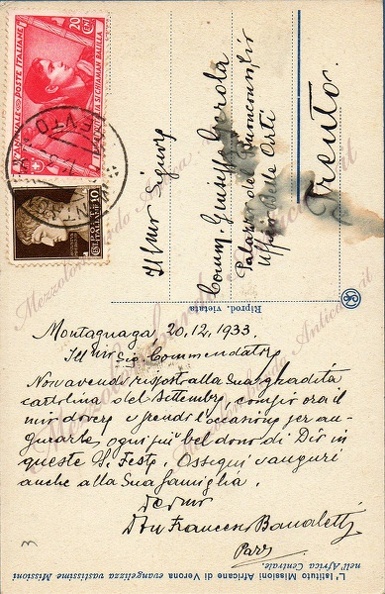 20
CENT
POSTE ITALIANE
I BIMBI D'ITALIA SI CHIAMAN BALILLA
10
Ill.mo Signor
Comm. Giuseppe Gerola
Palazzo del Buonconsiglio
Ufficio Belle Arti
Trento
Riprod. vietata
Montagnaga 20.12.1933
Ill.mo Sig. Commendatore
Non avendo risposto alla Sua gradita
cartolina del Settembre, compio ora il
mio dovere e prendo l'occasione per au-
gurarle ogni più bel dono di Dio in
queste S. Feste. Ossequi e auguri
anche alla Sua famiglia.
Dev.mo
Don Francesco
Parr.
L'Istituto Missioni Africane di Verona evangelizza vastissime Missioni
nell'Africa Centrale.
Mezzolombardo Antica